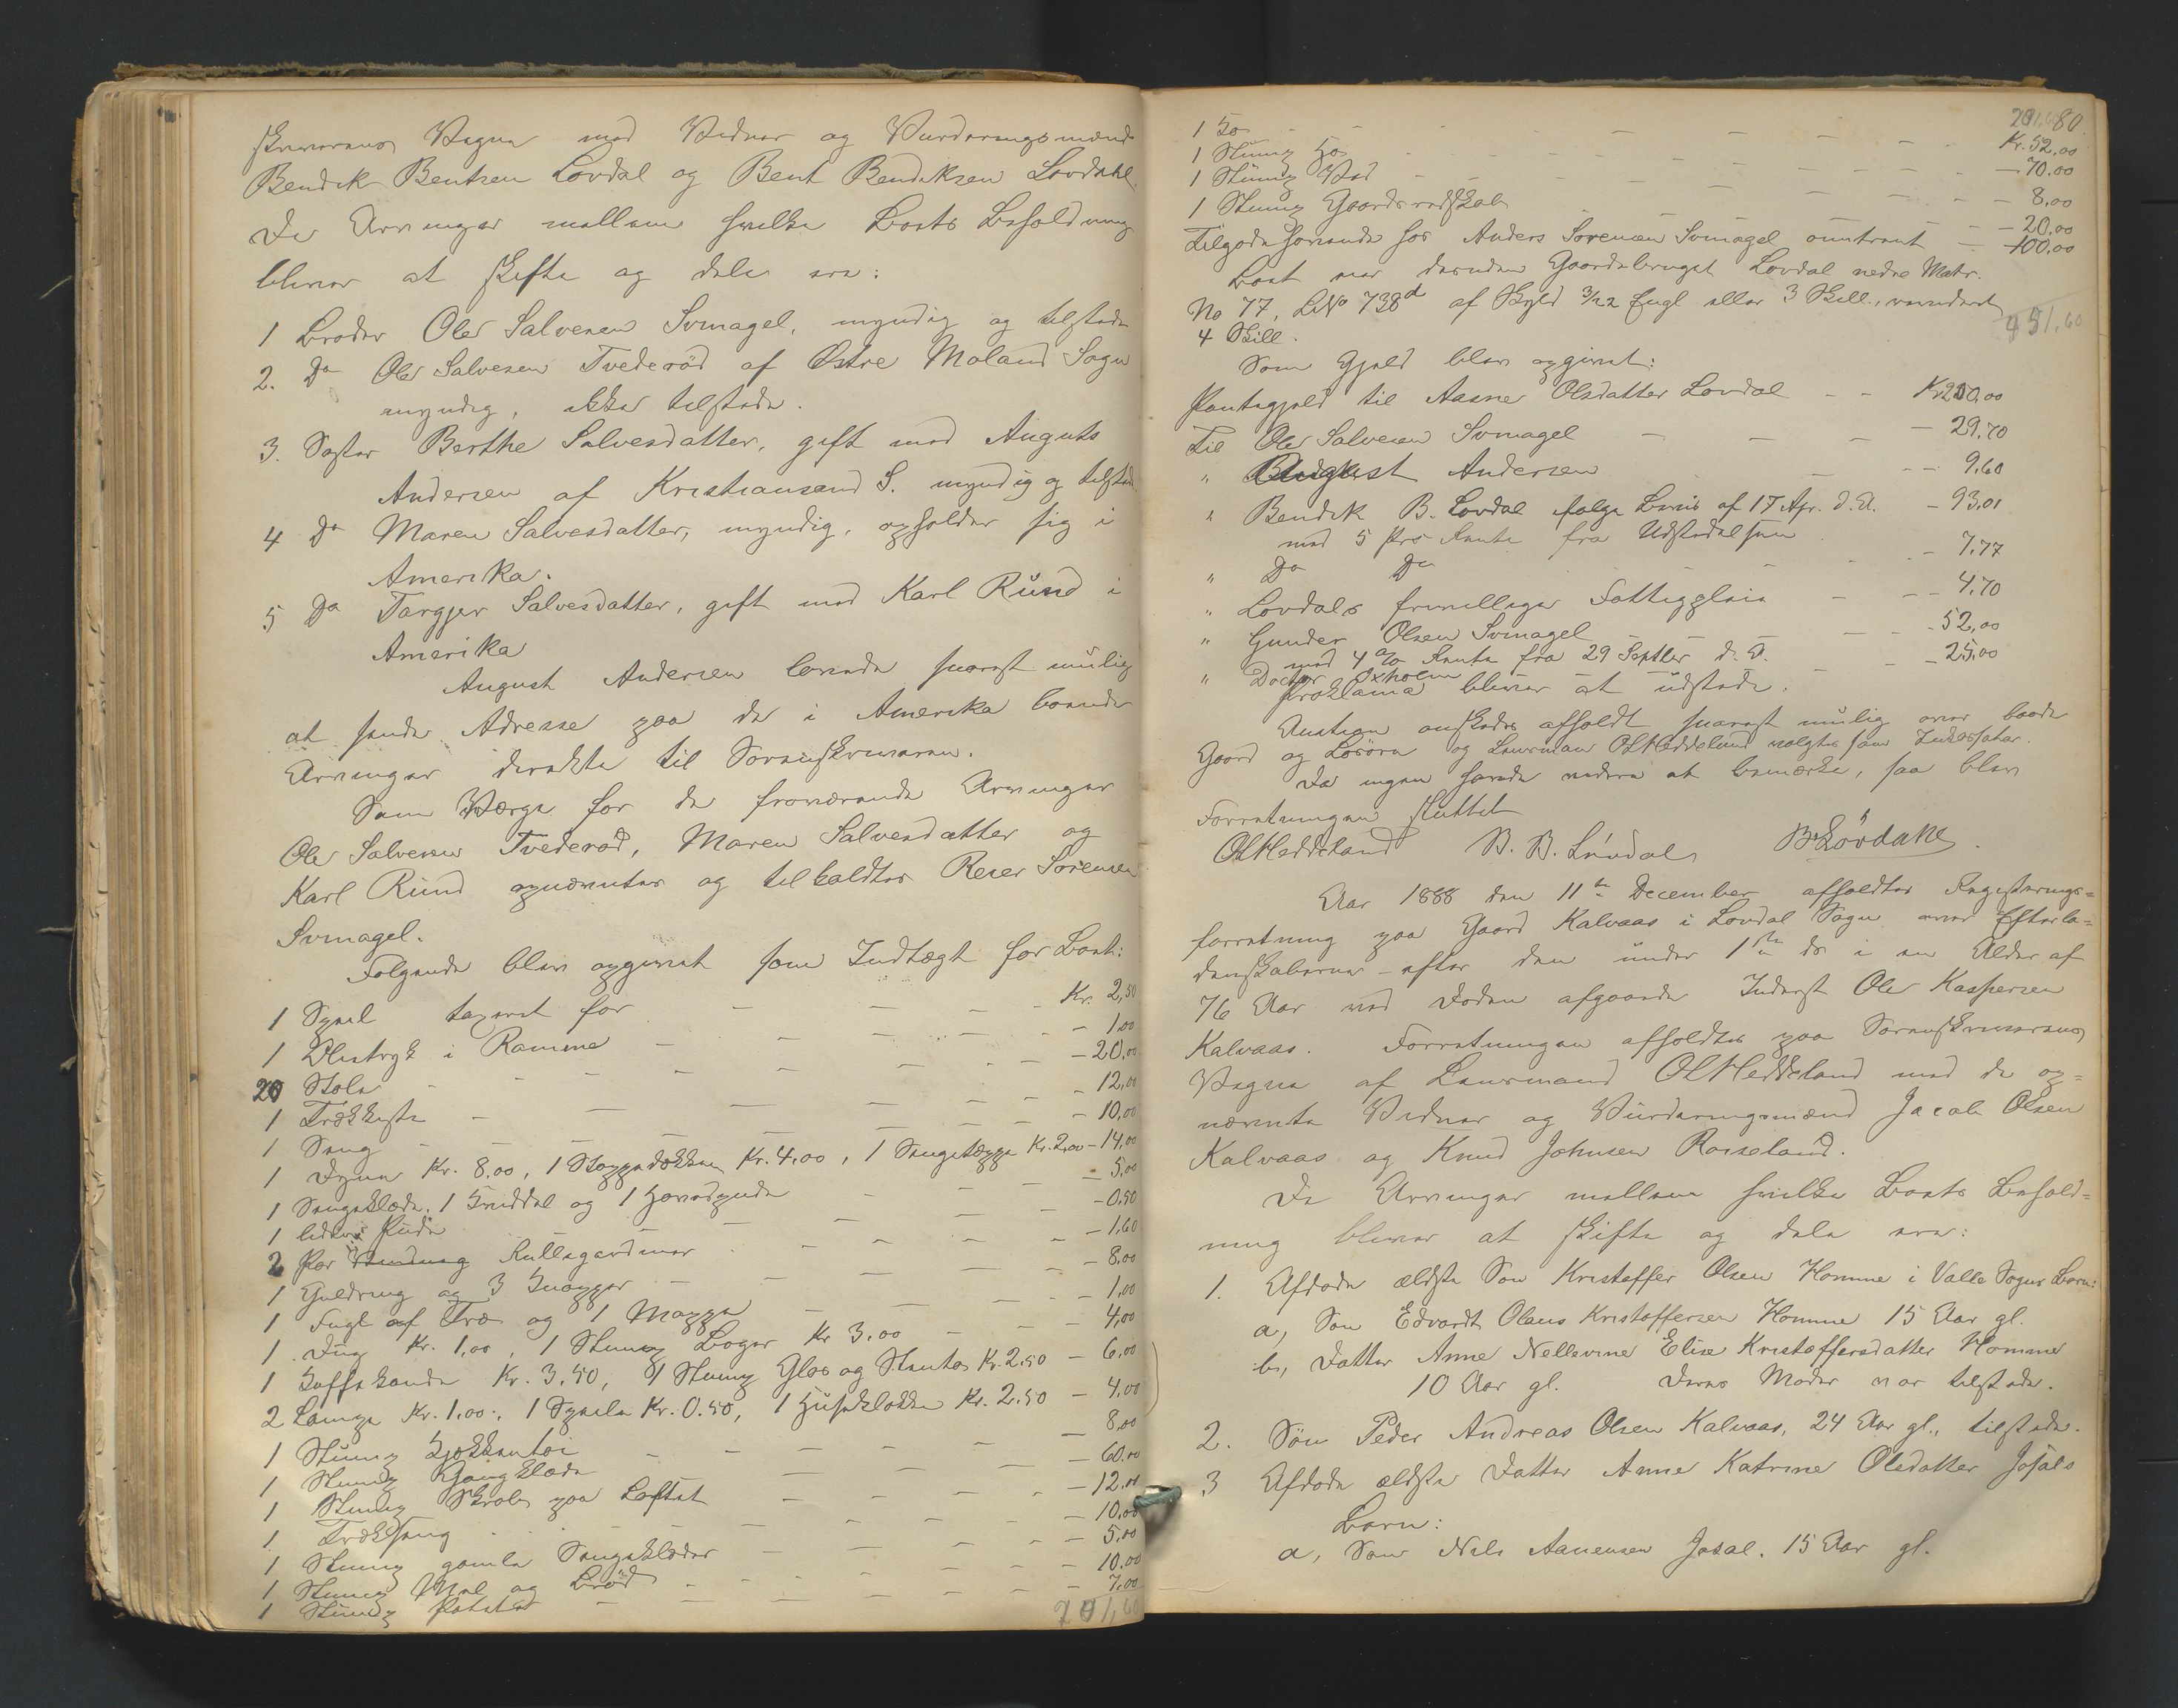 skriverens Vegne med Vidner og Vurderingsmænd
Bendik Bentsen Lovdal og Bent Bendiksen Lovdahl.
De Arvinger mellem hvilke Boets Beholdning
bliver at skifte og dele ere:
1 Broder Ole Salvesen Svinagel, myndig og tilstede
2. Do Ole Salvesen Tvederød af Østre Moland Sogn
myndig, ikke tilstede.
3. Søster Berthe Salvesdatter, gift med Auguts
Andersen af Kristiansand S. myndig og tilsted
4 Do Maren Salvesdatter, myndig, opholder sig i
Amerika.
5 Do Targjer Salvesdatter, gift med Karl Rund i
Amerika
August Andersen lovede snarest mulig
at sende Adresse paa de i Amerika boende
Arvinger direkte til Sorenskriveren.
Som Værge for de fraværende Arvinger
Ole Salvesen Tvederød, Maren Salvesdatter og
Karl Rund opnævntes og tilkaldtes Reier Sørensen
Svinagel.
Følgende blev opgivet som Indtægt for Boet:
1 Speil taxeret for — — — Kr. 2,50
1 Olietryk i Ramme — — — 1,00
20 Stole — — — 20,00
1 Trækkiste — — — 12,00
1 Seng — — — 10,00
1 Dyne Kr. 8.00, 1 Kr. 4.00, 1 Sengetæppe Kr. 2,00 — 14,00
1 Sengeklæde, 1 og 1 Hovedpude — — 5,00
1 liden Pude — — — 0.50
2 Par Rullegardiner — — — 1,60
1 Guldring og 3 Knapper — — — 8.00
1 Fugl af Træ og 1 Mappe — — — 1,00
1 Dug Kr. 1,00, 1 Slump Bøger Kr 3.00 — — 4,00
1 Kaffekande Kr. 3.50, 1 Slump Glas og Kr. 2.50 — 6,00
2 Lampe Kr. 1.00, 1 Kr. 0.50, 1 Husklokke Kr. 2.50 — 4,00
1 Slump Kjøkkentøi — — — 8,00
1 Slump Gangklæde — — — 60.00
1 Slump Skrab paa Loftet — — — 12.00
1 Træksseng — — — 10,00
1 Slump gamle Sengeklæder — — — 5,00
1 Slump Mel og Brød — — — 10,00
1 Slump Poteter — — — 7,00
201,60
201.80
1 Ko — — — Kr. 52,00
1 Slump Hø — — — 70,00
1 Slump Ved — — — 8,00
1 Slump Gaardsredskab — — — 20,00
Tilgodehavende hos Anders Sørensen Svinagel omtrent — 100,00
Boet eier desuden Gaardebruget Lovdal nedre Matr.
No 77, LNo 738d af Skyld 3/22 Engl eller 3 Skill., revideret
4 Skill.
451,60
Som Gjæld blev opgivet:
Pantegjæld til Aasne Olsdatter Lovdal — — Kr 200,00
Til Ole Salvesen Svinagel — — — 29,70
" August Andersen — — — 9,60
" Bendik B. Lovdal ifølge Bevis af 17 Apr. d. A. — 93,01
med 5 Pro Rente fra Udstedelsen
" Do Do — — 7,77
" Lovdals frivillige Fattigpleie — — 4,70
" Gunder Olsen Svinagel — — 52,00
med 4 % Rente fra 29 Septbr d. A.
" Doctor Oxholm — — 25,00
Proklama bliver at udstede.
Auktion ønskedes afholdt snarest mulig over baade
Gaard og Løsøre og Lensmand OLHeddeland valgtes som Inkassator.
Da ingen havde videre at bemærke, saa blev
Forretningen sluttet
OLHeddeland B. B. Løvdal BBLövdahl.
Aar 1888 den 11te December afholdtes Registrerings=
forretning paa Gaard Kalvaas i Lovdal Sogn over Efterla=
denskaberne – efter den under 1ste ds i en Alder af
76 Aar ved Døden afgaaede Inderst Ole Kaspersen
Kalvaas. Forretningen afholdtes paa Sorenskriverens
Vegne af Lensmand OLHeddeland med de op=
nævnte Vidner og Vurderingsmænd Jacob Olsen
Kalvaas og Knud Johnsen Roiseland.
De Arvinger mellem hvilke Boets Behold=
ning bliver at skifte og dele ere:
1. Afdøde ældste Søn Kristoffer Olsen Homme i Valle Sogns Børn:
a, Søn Edvardt Olaus Kristoffersen Homme 15 Aar gl.
b, Datter Anne Nellevine Elise Kristoffersdatter Homme
10 Aar gl. Deres Moder var tilstede.
2. Søn Peder Andreas Olsen Kalvaas, 24 Aar gl., tilstede.
3 Afdøde ældste Datter Anne Katrine Olsdatter Josals
Børn:
a, Søn Nels Aanensen Josal. 15 Aar gl.